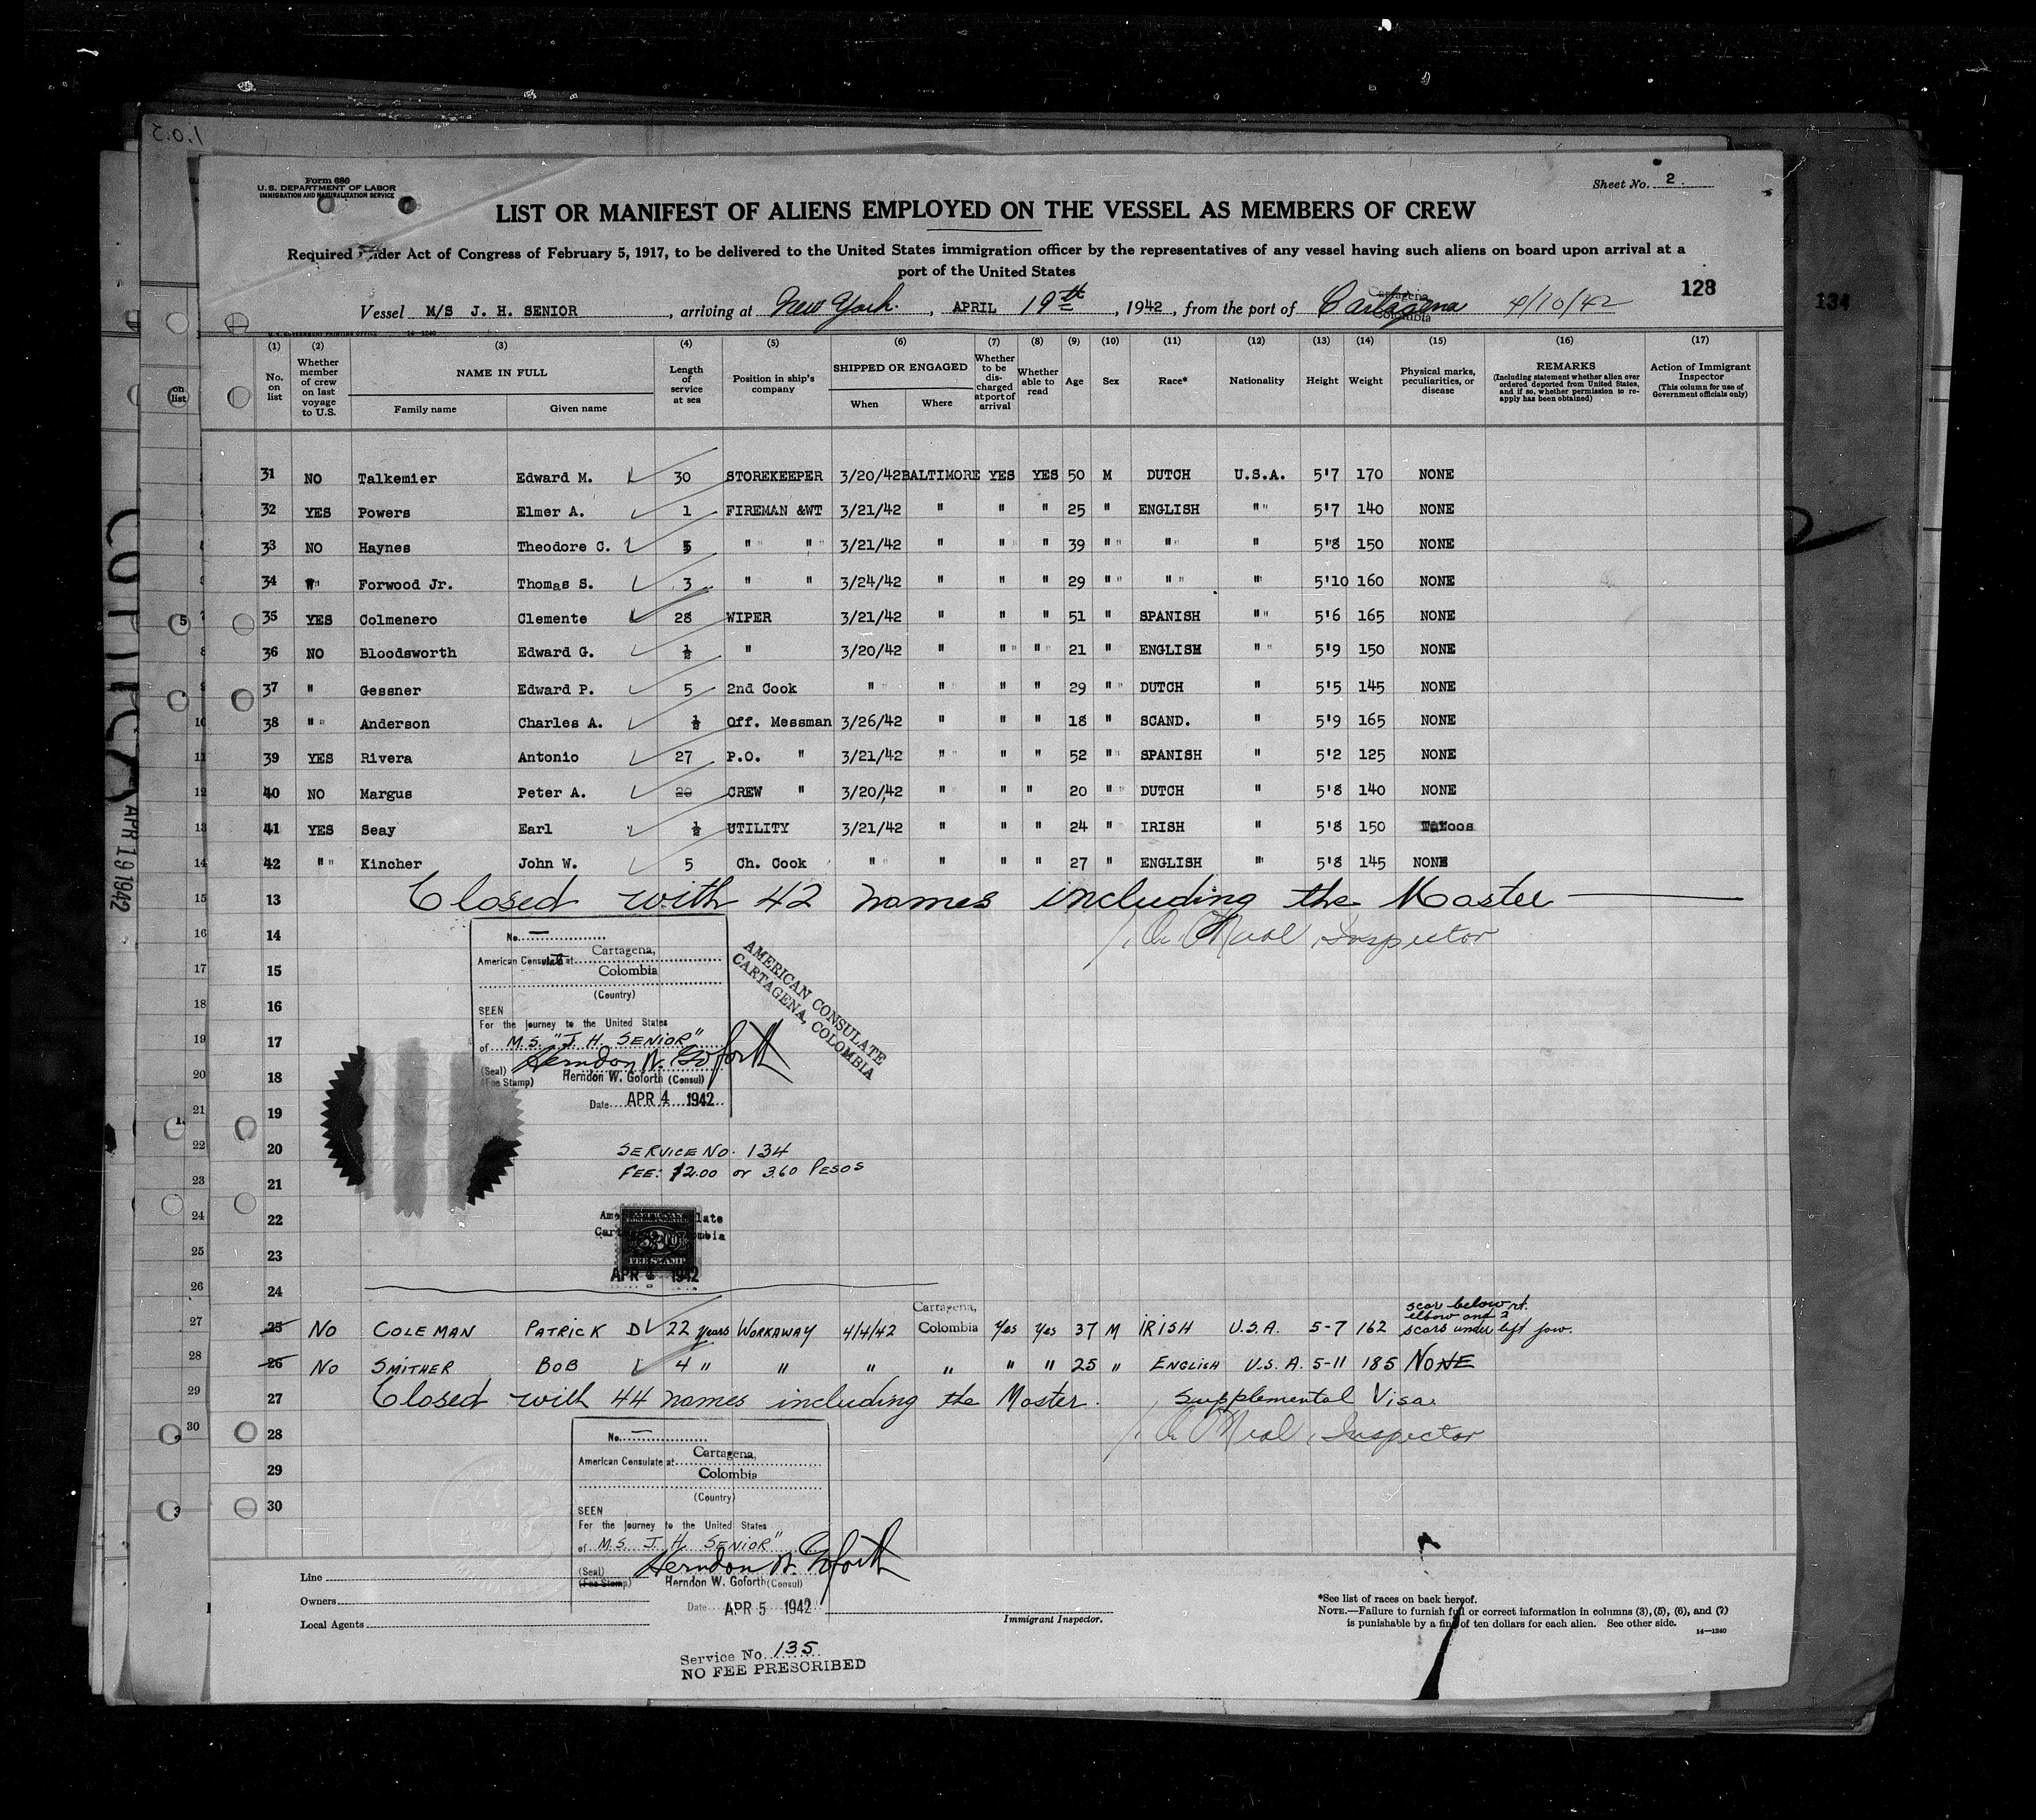 Form 680
U.S. DEPARTMENT OF LABOR
IMMIGRATION AND NATURALIZATION SERVICE
Sheet No. 2
LIST OR MANIFEST OF ALIENS EMPLOYED ON THE VESSEL AS MEMBERS OF CREW
Required under Act of Congress of February 5, 1917, to be delivered to the United States immigration officer by the representatives of any vessel having such aliens on board upon arrival at a
port of the United States
128
134
Vessel M/S J. H. SENIOR, arriving at New York, APRIL 19th, 1942, from the port of Cartagena 4/10/42
U.S. GOVERNMENT PRINTING OFFICE 14-1240
(1) (2) (3) (4) (5) (6) (7) (8) (9) (10) (11) (12) (13) (14) (15) (16) (17)
No. on list
Whether member of crew on last voyage to U.S.
NAME IN FULL
Family name Given name
Length of service at sea
Position in ship's company
SHIPPED OR ENGAGED
When Where
Whether to be discharged at port of arrival
Whether able to read
Age
Sex
Race*
Nationality
Height
Weight
Physical marks, peculiarities, or disease
REMARKS
(Including statement whether alien ever ordered deported from United States, and if so, whether permission to re-apply has been obtained)
Action of Immigrant Inspector
(This column for use of Government officials only)
31 NO Talkemier Edward M. 30 STOREKEEPER 3/20/42 BALTIMORE YES YES 50 M DUTCH U.S.A. 5'7 170 NONE
32 YES Powers Elmer A. 1 FIREMAN &WT 3/21/42 " " " 25 " ENGLISH " " 5'7 140 NONE
33 NO Haynes Theodore C. 5 " " 3/21/42 " " " 39 " " " 5'8 150 NONE
34 " Forwood Jr. Thomas S. 3 " " 3/24/42 " " " 29 " " " 5'10 160 NONE
35 YES Colmenero Clemente 28 WIPER 3/21/42 " " " 51 " SPANISH " 5'6 165 NONE
36 NO Bloodsworth Edward G. ½ " 3/20/42 " " " 21 " ENGLISH " 5'9 150 NONE
37 " Gessner Edward P. 5 2nd Cook " " " " 29 " DUTCH " 5'5 145 NONE
38 " Anderson Charles A. ½ Off. Messman 3/26/42 " " " 18 " SCAND. " 5'9 165 NONE
39 YES Rivera Antonio 27 P.O. " 3/21/42 " " " 52 " SPANISH " 5'2 125 NONE
40 NO Margus Peter A. 20 CREW " 3/20/42 " " " 20 " DUTCH " 5'8 140 NONE
41 YES Seay Earl ½ UTILITY 3/21/42 " " " 24 " IRISH " 5'8 150 Tatoos
42 " Kincher John W. 5 Ch. Cook " " " " 27 " ENGLISH " 5'8 145 NONE
13 Closed with 42 names including the Master
14 Inspector
No. —
American Consulate at Cartagena,
15 Colombia
(Country)
16 SEEN
For the journey to the United States
17 of M.S. "J. H. SENIOR"
Herndon W. Goforth
18 (Seal) (Fee Stamp) Herndon W. Goforth (Consul)
Date APR 4 1942
AMERICAN CONSULATE
CARTAGENA, COLOMBIA
19
20 SERVICE NO. 134
21 FEE: $2.00 or 3.60 PESOS
22
FEE STAMP
23
APR 4 1942
24
25 NO COLEMAN PATRICK D 22 years WORKAWAY 4/4/42 Cartagena, Colombia Yes Yes 37 M IRISH U.S.A. 5-7 162 scar below rt. elbow and 2 scars under left jaw.
26 NO SMITHER BOB 4 " " " " " " 25 " ENGLISH U.S.A. 5-11 185 NONE
27 Closed with 44 names including the Master. Supplemental Visa.
28 Inspector
No. —
American Consulate at Cartagena,
29 Colombia
(Country)
30 SEEN
For the journey to the United States
of M.S. J. H. SENIOR"
Herndon W. Goforth
(Seal) (Fee Stamp) Herndon W. Goforth (Consul)
Date APR 5 1942
Line
Owners
Local Agents
Immigrant Inspector.
*See list of races on back hereof.
NOTE.—Failure to furnish full or correct information in columns (3), (5), (6), and (7)
is punishable by a fine of ten dollars for each alien. See other side.
14—1240
Service No. 135
NO FEE PRESCRIBED
APR 19 1942